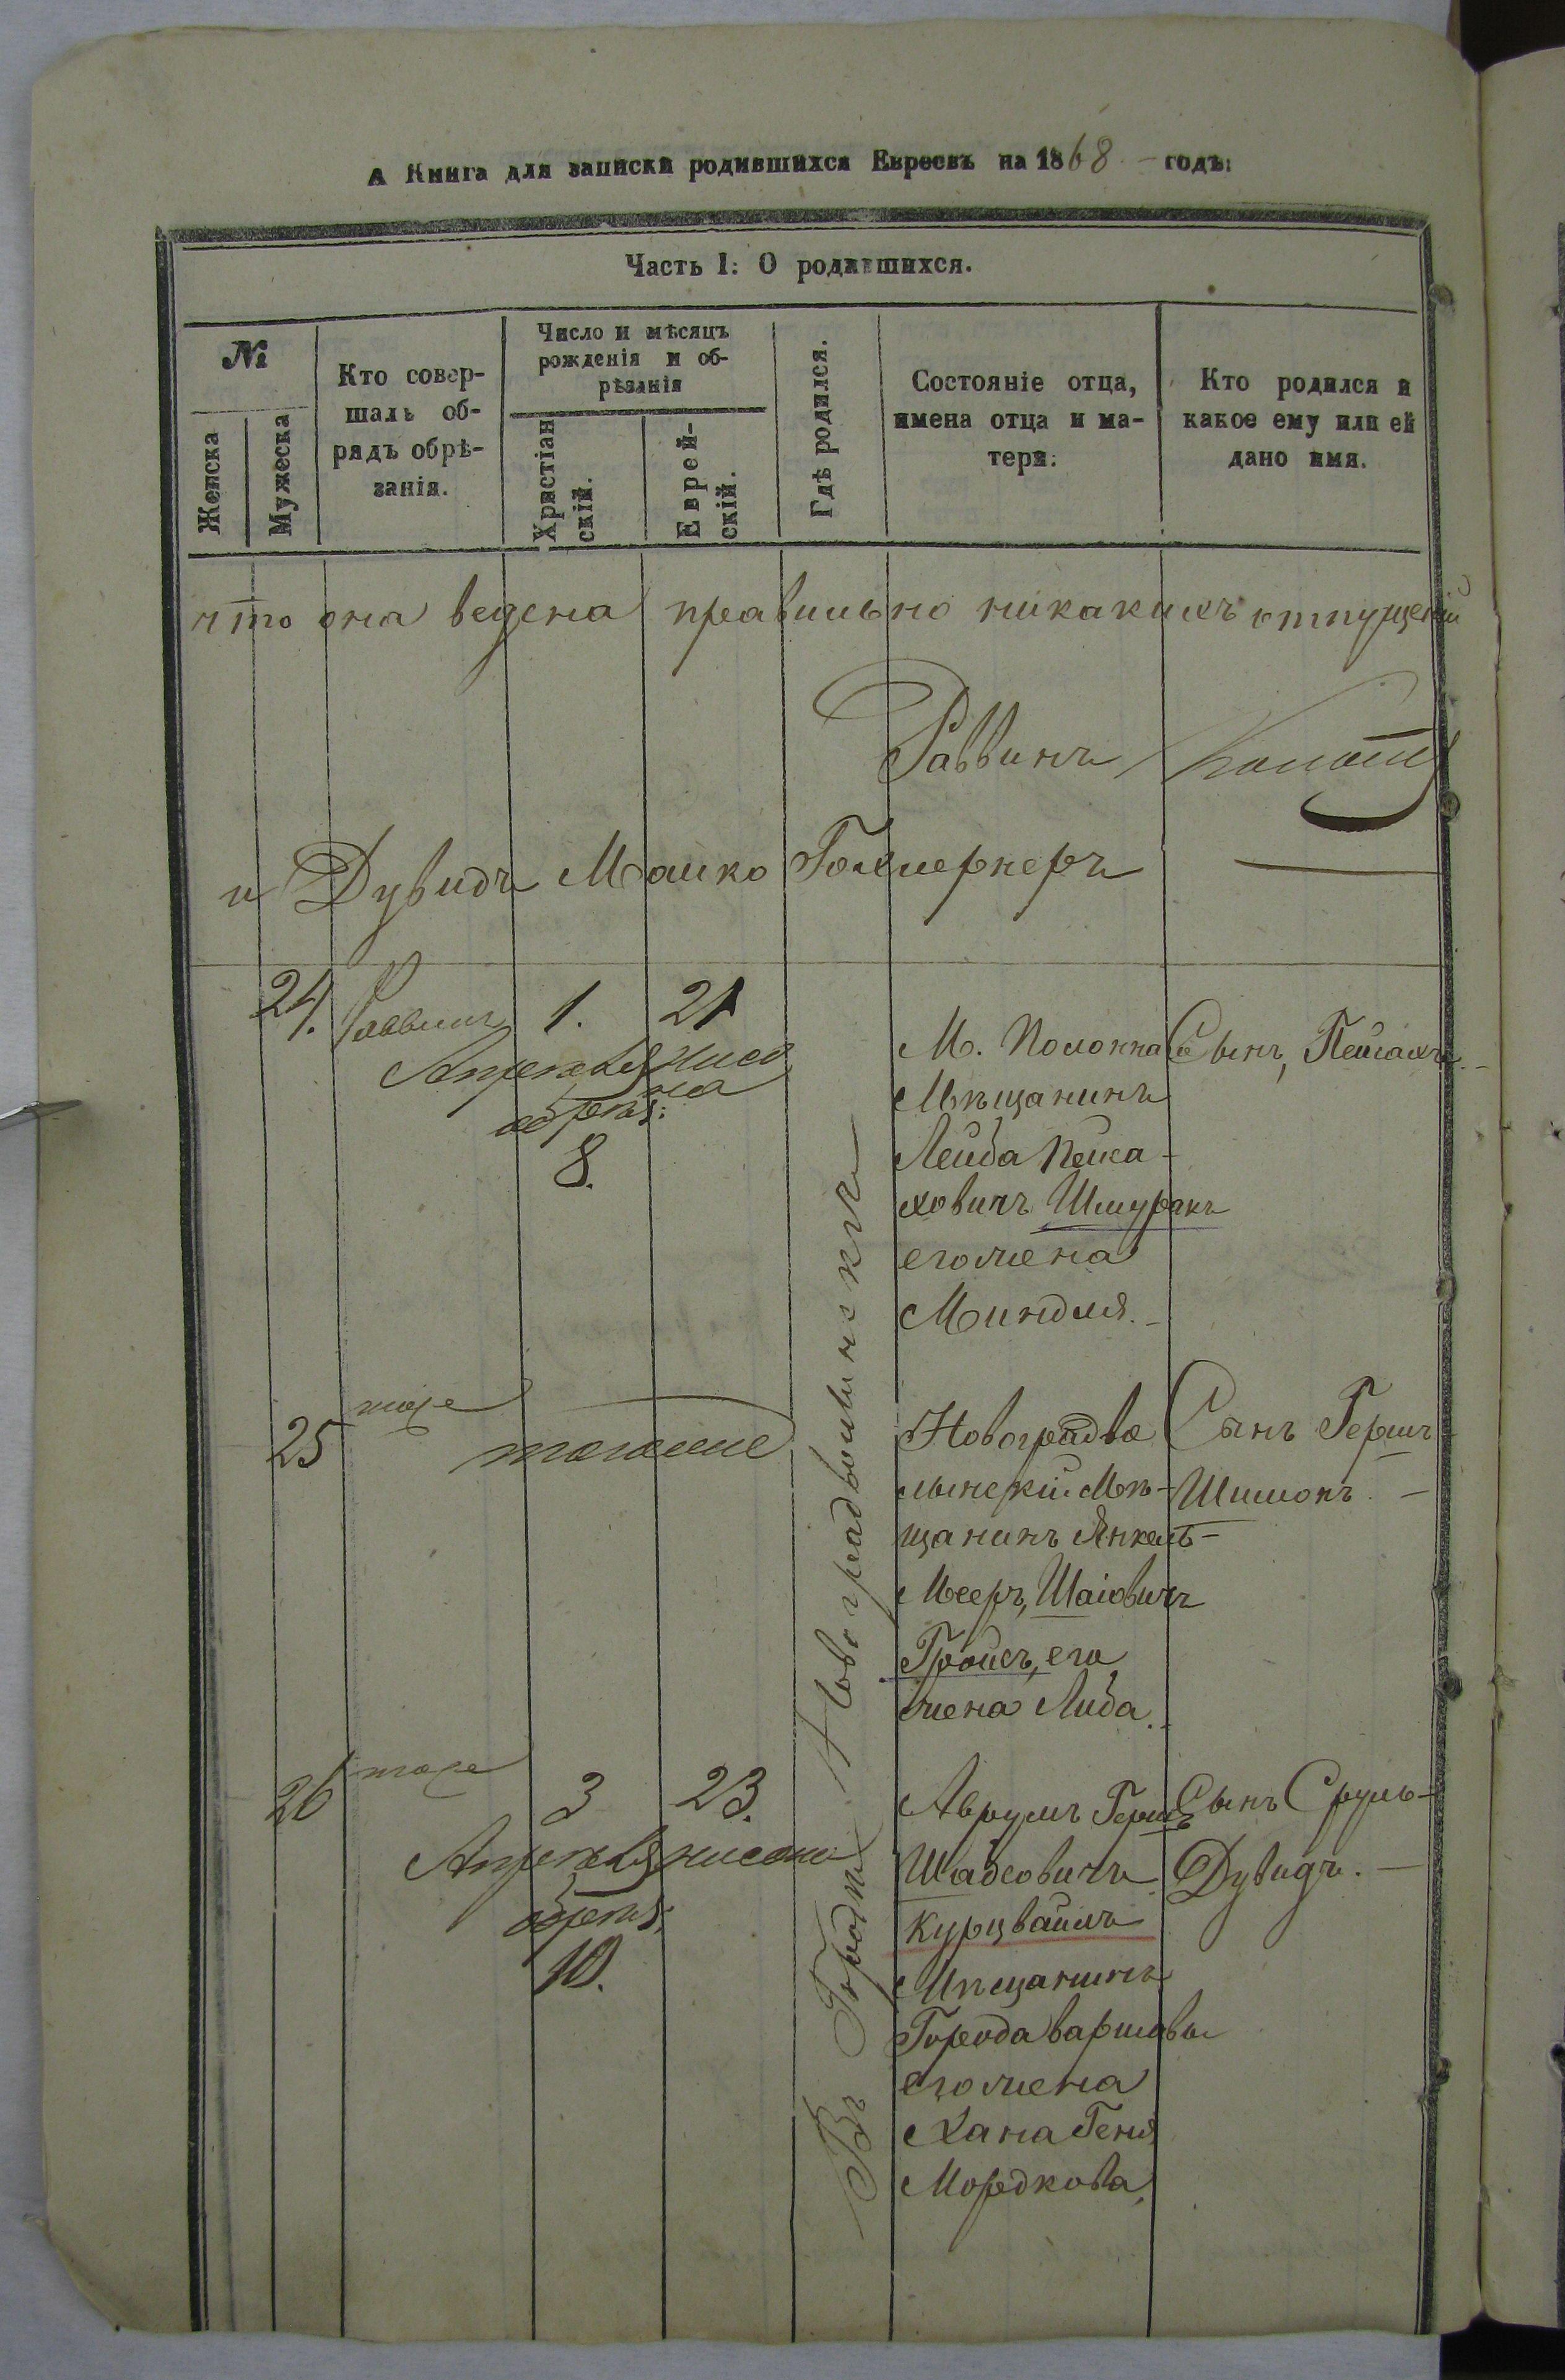 А Книга для записки родившихся Евреевъ на 1868 годъ:
Часть I: О родившихся.
№
Женска
Мужеска
Кто совер-
шалъ об-
рядъ обрѣ-
занія.
Число и мѣсяцъ
рожденія и об-
рѣзанія
Христіан
скій.
Еврей-
скій.
Гдѣ родился.
Состояніе отца,
имена отца и ма-
тери:
Кто родился и
какое ему или ей
дано имя.
что она ведена правильно никакихъ отпущеній
Раввинъ
и Дувидъ Мошко
Въ Городѣ Новоградволынскѣ
24. Раввинъ 1. 21
Апреля Ниса
на
обрезы:
8.
М. Полонна
Мѣщанинъ
Лейба Пейса-
ховичъ Шмуракъ
его жена
Миндля.
Сынъ, Пейсахъ.
25 тоже тогоже
Новоградво
лынскій Мѣ-
щанинъ Янкель-
Мееръ, Шаіовичъ
Гройсъ, его
жена Либа.
Сынъ Гершъ
Шимонъ. -
26 тоже 3 23.
Апреля нисана
обрезы:
10.
Аврумъ Гершъ
Шабсовичъ
Курцваймъ
Мѣщанинъ
Города Варшавы
его жена
Хана Геня
Мордкова,
Сынъ Сруль-
Дувидъ. -